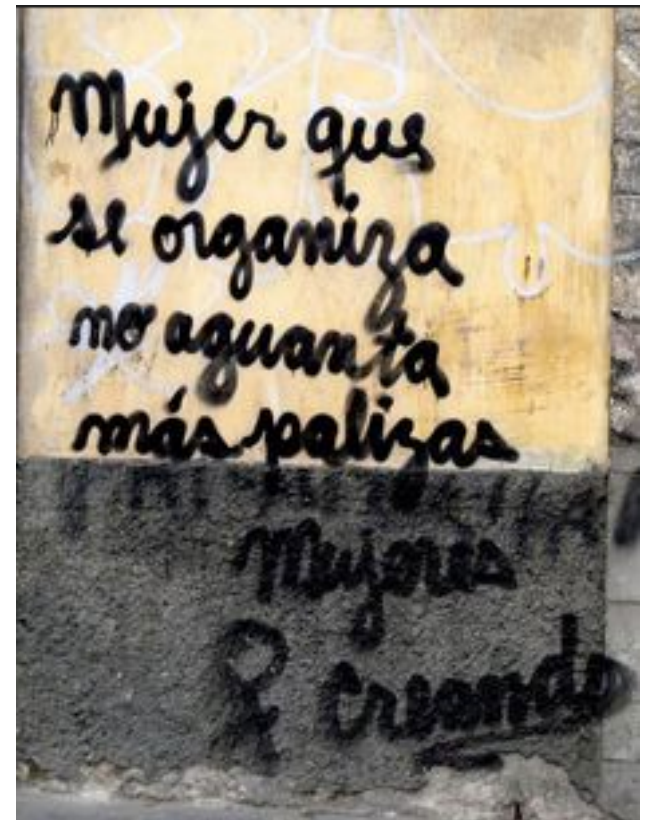 Mujer que
se organiza
no aguanta
más palizas
Mujeres
creando